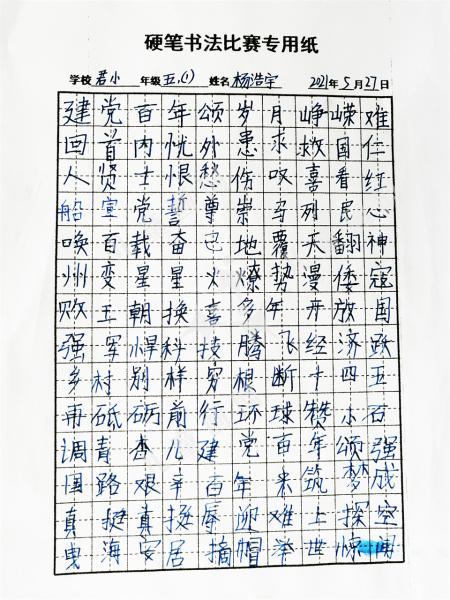 硬笔书法比赛专用纸
学校 君小 年级 五.(1) 姓名 杨浩宇 2021年5月27日
建党百年颂岁月峥嵘难
回首内忧外患求救国仁
人贤士恨愁伤叹喜看红
船宣党誓尊崇马列民心
唤百载奋己地覆天翻神
州变星星火燎势漫倭寇
败王朝换喜多年开放国
强军悍科技腾飞经济跃
乡村别样穷根断十四五
再砥砺前行环球赞小百
调青杏儿建党百年颂强
国路艰辛百年来筑梦成
真挺真挺辱迎难上探空
曳海安居摘帽举世惊闻